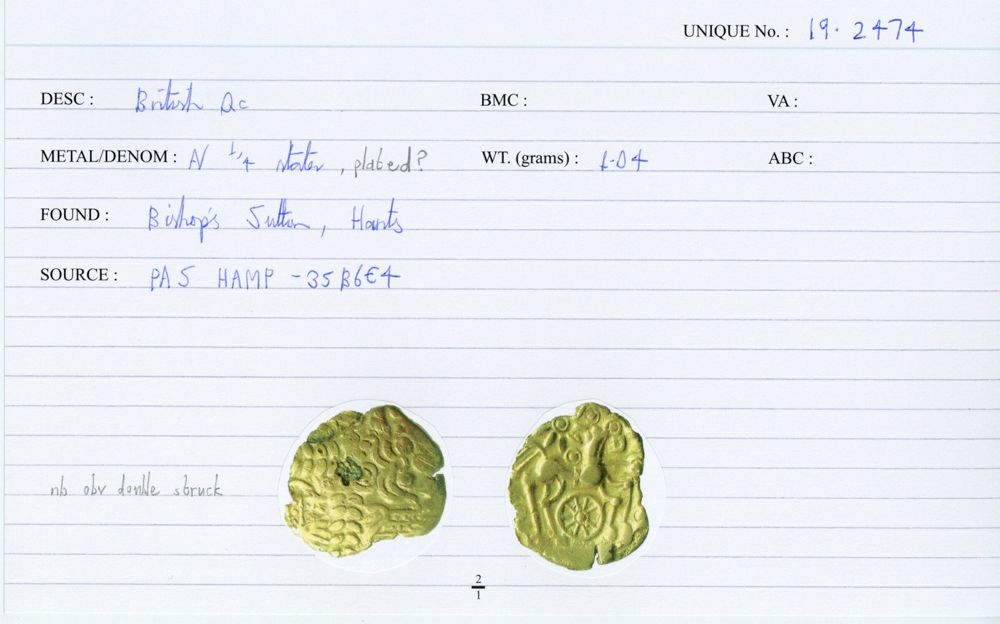 UNIQUE No. : 19.2474
DESC : British Qc BMC : VA :
METAL/DENOM : AV 1/4 stater, plated? WT. (grams) : 1.04 ABC :
FOUND : Bishop's Sutton, Hants
SOURCE : PAS HAMP -35B6E4
nb obv double struck
2/1